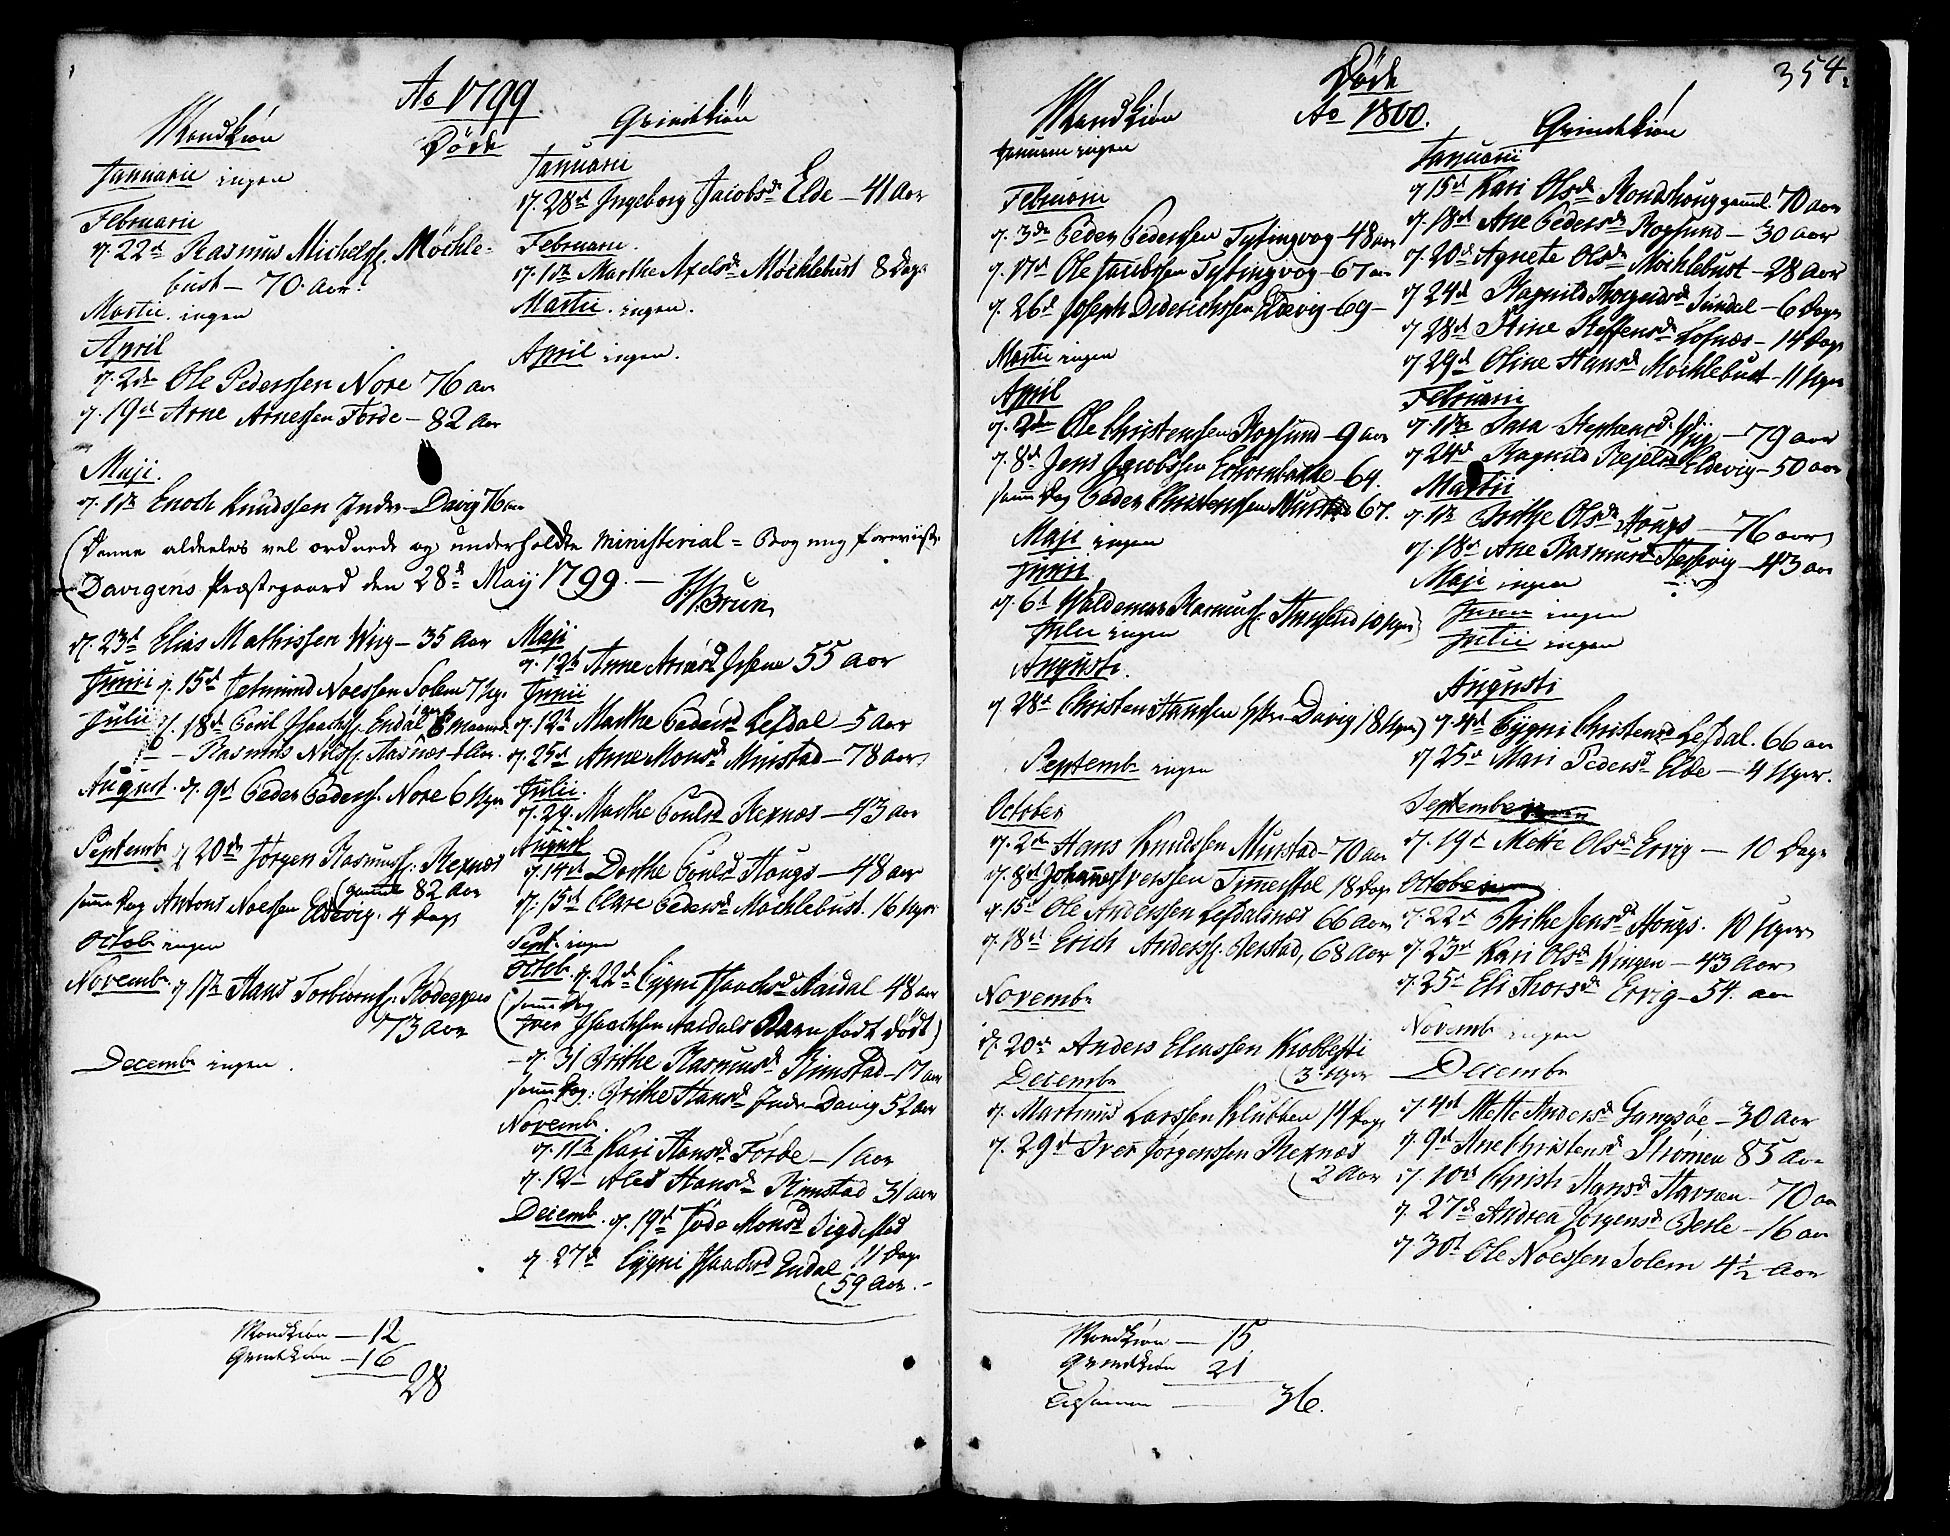 Ao 1799
Døde
Mandkiøn
Januarii ingen
Februarii
d. 22d Rasmus Michelss. Møchle-
bust – 70 Aar
Martii ingen
April
d. 2den Ole Pederssen Nore 76 aar
d. 19d Arne Arnessen Förde – 82 Aar
Maji.
d. 1ste Enoch Knudssen Indre-Davig 76 aar
(Denne aldeeles vel ordnede og underholdte Ministerial-Bog mig foreviist
Davigens Præstegaard den 28d Maij 1799. –
JBrun
d. 23d Elias Mathissen Wiig – 35 Aar
Junii d. 15d Jetmund Noessen Solem 7 Uger
Julii d. 18d Povil Isachss. Endal 8 Maaned
– Rasmus Nilss. Aasnæs
August d. 9d Peder Pederss. Nore 6 Uger
Septemb d. 20de Jørgen Rasmuss. Rexnæs
gammel 82 Aar
samme Dag Antons Noessen Eldevig. 4 Dage
Octob ingen
Novemb. d. 17de Hans Torbiørns. Rødeggen
73 Aar
Decemb ingen
Qvindekiön
Januarii
d. 28d Ingeborg Jacobsd. Elde – 41 Aar
Februarii.
d. 1ste Marthe Axelsd. Møchlebust 8 Dage
Martii. ingen.
April ingen.
Maji
d. 12te Anne 55 Aar
Junii
d. 12te Marthe Pedersd. Lefdal – 5 Aar
d. 25d Anne Monsd. Muustad – 78 aar
Julii.
d. 29. Marthe Poulsd. Rexnæs – 43 Aar
August
d. 14d Dorthe Poulsd. Hougs – 48 aar
d. 15d Clare Pedersd. Mochlebust. 16 Uger
Sept. ingen
Octob. d. 22d Eygni Isaachsd. Naidal 48 aar
(samme Dag
Iver Isaachsen Nardals Barn født dødt)
– d. 31 Birthe Rasmusd. Rimstad – 17 aar
samme Dag: Birthe Hansd. Indre-Davig 52 Aar
Novemb.
d. 11te Kari Hansd. Förde – 1 Aar
d. 12te Aled Hansd. Rimstad 31 Aar
Decemb. d. 19d Jøde Monsd. Sigdestad
11 Dage
d. 27d Eygni Isaachsd. Endal
59 Aar. –
Mandkiøn – 12
Qvindekiøn – 16
28
354.
Døde
Ao 1800.
Mandkiøn
Januarii ingen
Februarii
d. 3de Peder Pederssen Tytingvog – 48 aar
d. 17d Ole Jacobssen Tytingvog – 67 aar
d. 26d Joseph Diderichssen Eldevig – 69 –
Martii ingen
April
d. 2den Ole Christenssen Ropsund – 9 aar
d. 8d Jens Jacobssen Echornbakke – 64.
samme Dag Peder Christenssen Mustad 67.
Maji ingen
Junii
d. 6d Waldemar Rasmuss. 10 Uger
Julii ingen
Augusti.
d. 28d Christen Hanssen Ytre-Davig (18 Uger)
Septemb ingen
October
d. 2d Hans Knudssen Muustad – 70 aar
d. 8d Johannes Iverssen Timerstøl 18 Dage
d. 15d Ole Anderssen Lefdalsnæs 66 Aar
d. 18d Erich Anderss. Rerstad, 68 Aar
Novemb
d. 20d Anders Eliassen Krobbesti
3 Uger
Decemb
d. Martinus Larssen Klubben 14 Dage
d. 29d Iver Jørgenssen Rexnæs
2 Aar
Qvindekiön
Januarii
d. 15d Kari Olsd. Rondshoug gamml. 70 aar
d. 18d Ane Pedersd. Ropsund – 30 aar
d. 20d Agnete Olsd. Mochlebust – 28 Aar
d. 24d Ragnild Sundal – 6 Dage
d. 28d Stine Steffensd. Lofnæs – 14 Dage
d. 29d Oline Hansd. Mochlebust – 11 Uger
Februarii
d. 11te Sara Stephensd. Wiig – 79 aar
d. 24d Ragnild Eldevig – 50 aar
Martii
d. 11te Birthe Olsd. Hougs – 76 aar
d. 18d Ane Rasmusd. – 43 aar
Maji ingen
Junii ingen
Julii ingen
Augusti
d. 4d Eygni Christensd. Lefdal. 66 aar
d. 25d Mari Pedersd. Elde – 4 Uger.
September
d. 19d Mette Olsd. Ervig – 10 Dage
October
d. 22d Birthe Jensd. Hougs. 10 Uger
d. 23d Kari Olsd. Wingen – 43 Aar
d. 25d Eli Thorsd. Ervig – 54. aar
Novemb ingen
Decemb
d. 4d Mette Andersd. Gangsøe – 30 Aar
d. 9d Ane Christensd. Strömen 85 Aar
d. 10d Christi Hansd. Stavnen – 70 aar
d. 27d Andrea Jørgensd. Berle – 16 aar
d. 30d Ole Noessen Solem 4½ Aar
Mandkiøn – 15
Qvindkiøn 21
Tilsammen – 36.